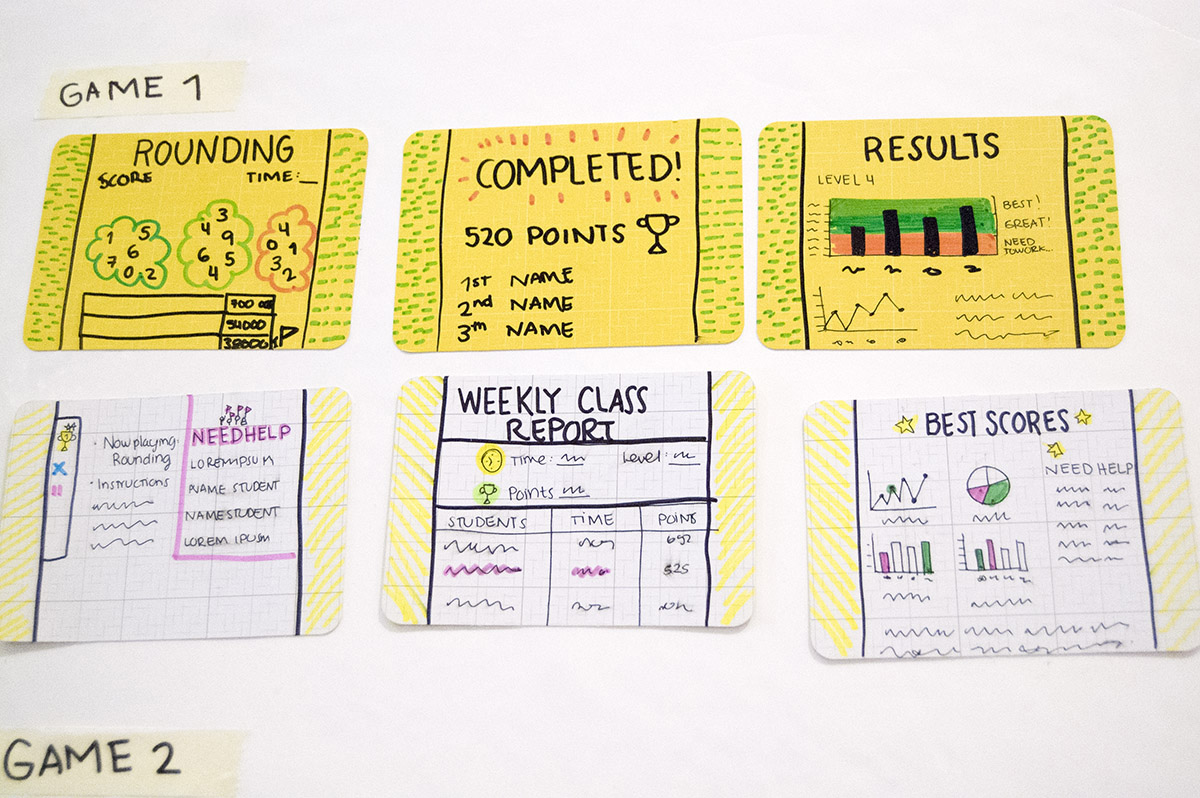 GAME 1
ROUNDING
SCORE TIME:
1 5
6
7 0 2
3
4 9
6 5
4
4
0 1
3
2
700
54000
38000
COMPLETED!
520 POINTS
1st NAME
2nd NAME
3th NAME
RESULTS
LEVEL 4
BEST!
GREAT!
NEED
TO WORK...
• Now playing:
Rounding
• Instructions
NEED HELP
LOREM IPSUM
NAME STUDENT
NAME STUDENT
LOREM IPUSM
WEEKLY CLASS
REPORT
Time: Level:
Points
STUDENTS TIME POINTS
692
525
BEST SCORES
NEED HELP
GAME 2